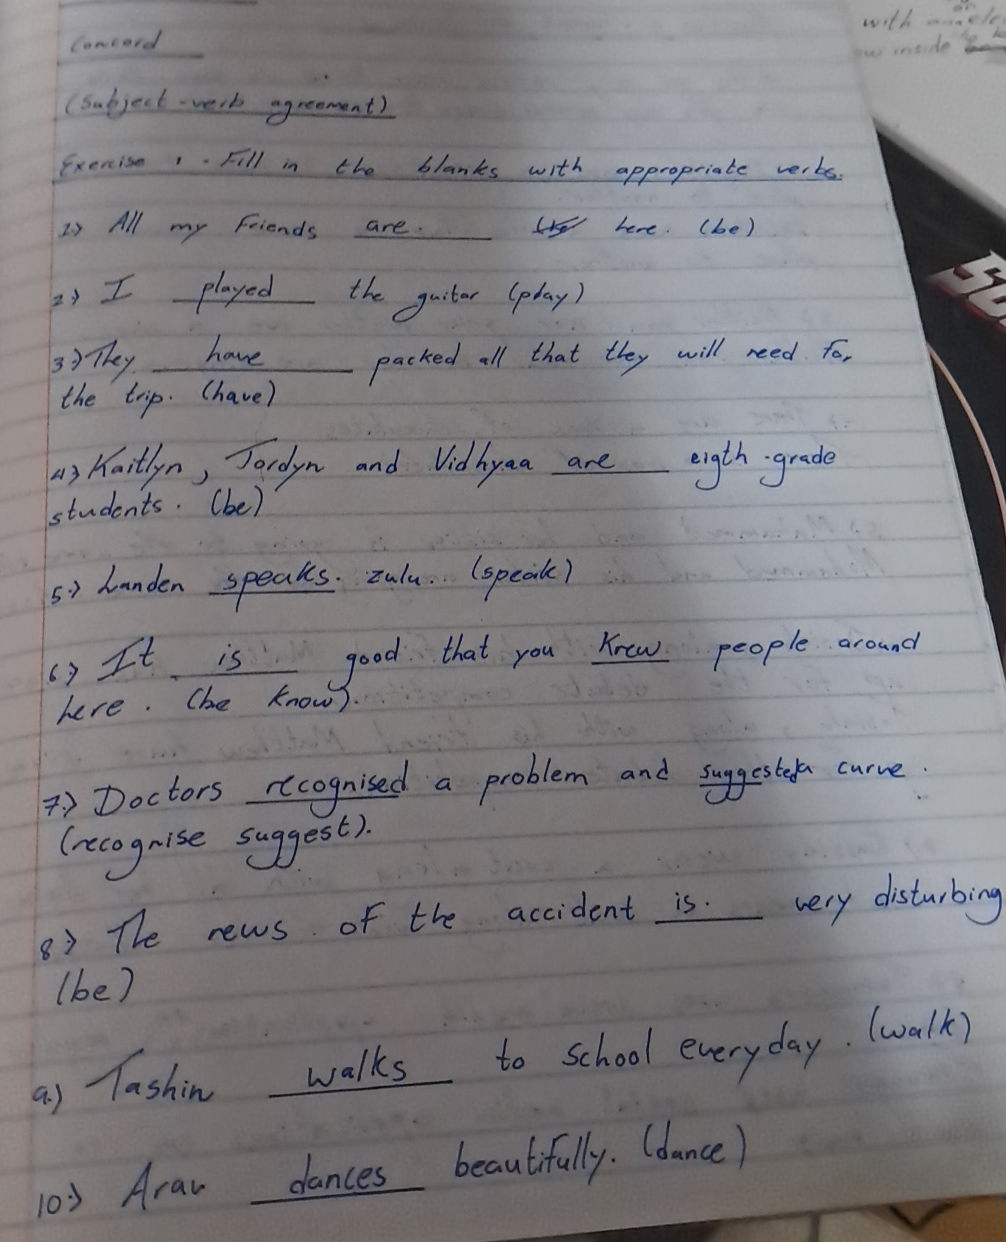 Concord
(Subject-verb agreement)
Exercise 1 - Fill in the blanks with appropriate verbs.
1) All my friends are. here. (be)
2) I played the guitar (play)
3) They have packed all that they will need for
the trip. (have)
4) Kaitlyn, Jordyn and Vidhyaa are eigth-grade
students. (be)
5) Landen speaks. zulu. (speak)
6) It is good that you Knew people around
here. (be know).
7) Doctors recognised a problem and suggested a curve.
(recognise suggest).
8) The news of the accident is. very disturbing
(be)
9.) Tashin walks to school everyday. (walk)
10) Arav dances beautifully. (dance)
with
inside